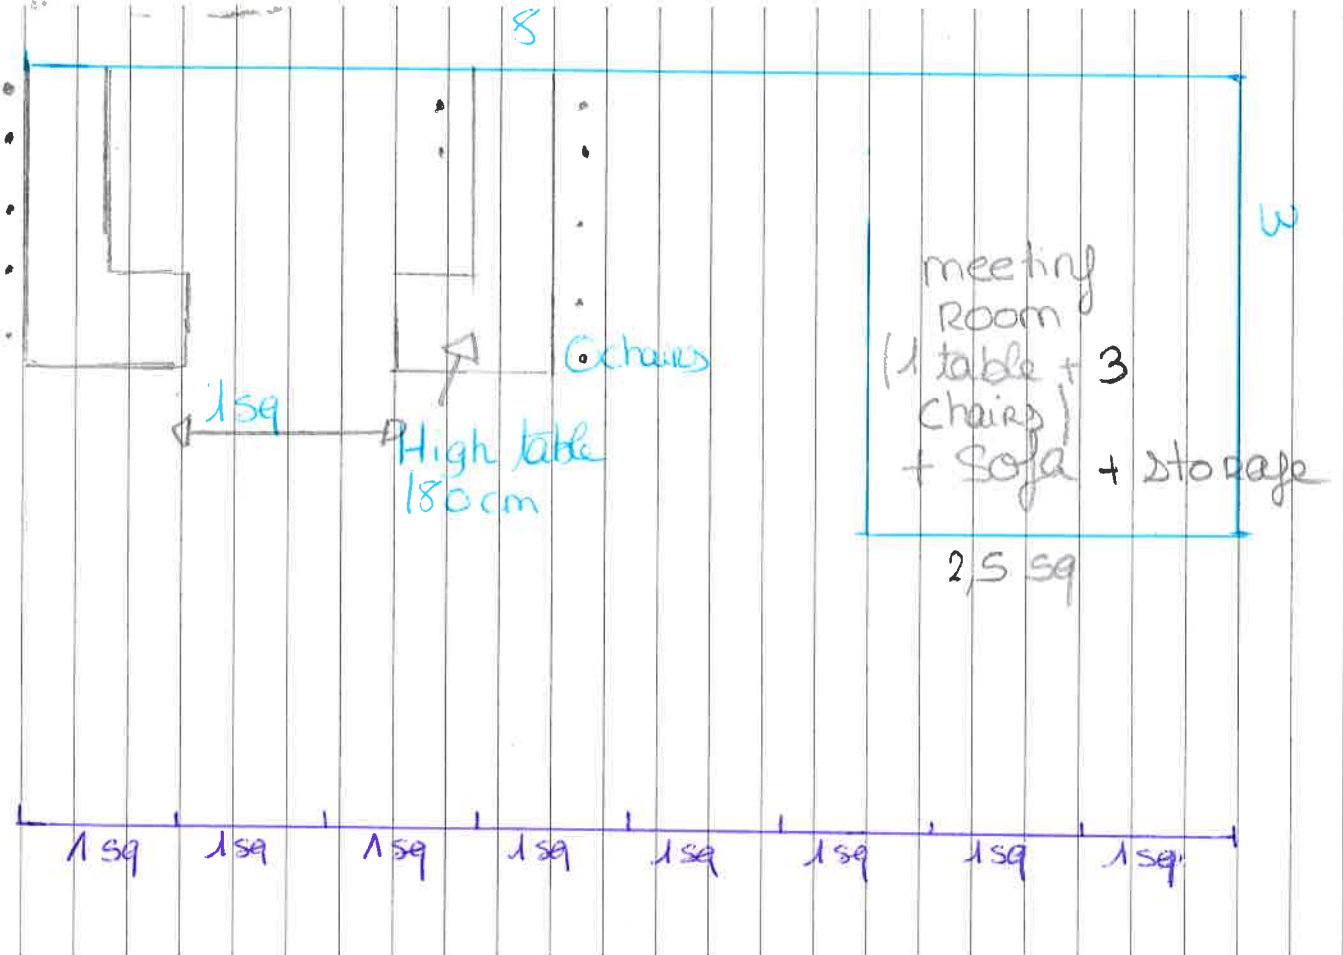 8
W
meeting
Room
(1 table + 3
chairs)
+ Sofa + storage
chairs
1sq
High table
180cm
2,5 sq
1sq 1sq 1sq 1sq 1sq 1sq 1sq 1sq.